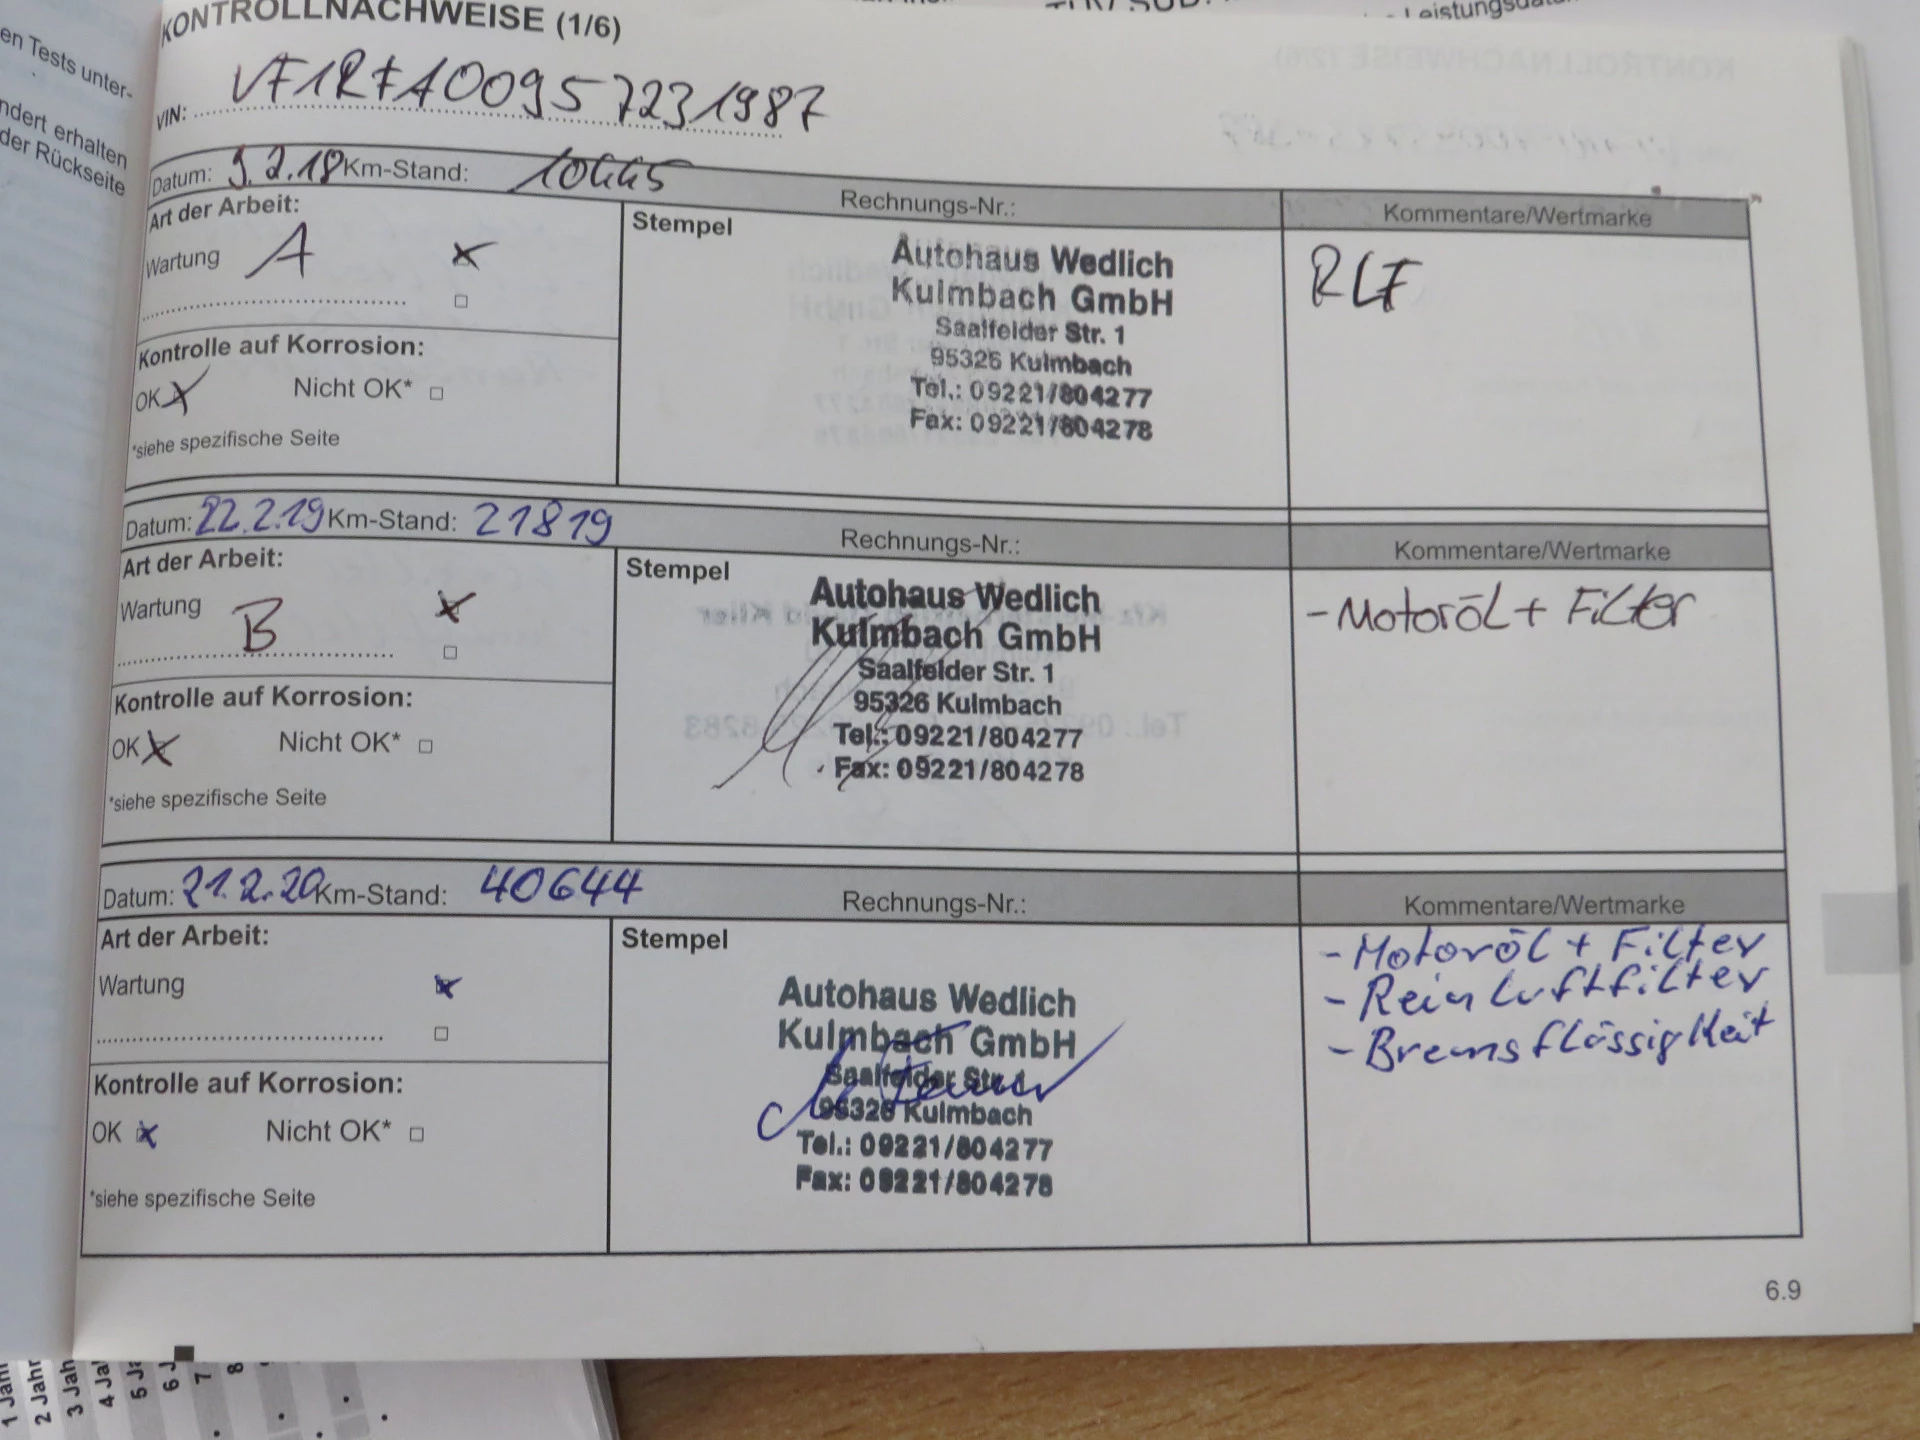 en Tests unter-
ndert erhalten
der Rückseite
KONTROLLNACHWEISE (1/6)
VIN: VF1RFA00957231987
Datum: 9.2.18 Km-Stand: 10445
Rechnungs-Nr.:
Kommentare/Wertmarke
Art der Arbeit:
Wartung A
Kontrolle auf Korrosion:
OK Nicht OK*
*siehe spezifische Seite
Stempel
Autohaus Wedlich
Kulmbach GmbH
Saalfelder Str. 1
95326 Kulmbach
Tel.: 09221/804277
Fax: 09221/804278
RLF
Datum: 22.2.19 Km-Stand: 21819
Rechnungs-Nr.:
Kommentare/Wertmarke
Art der Arbeit:
Wartung B
Kontrolle auf Korrosion:
OK Nicht OK*
*siehe spezifische Seite
Stempel
Autohaus Wedlich
Kulmbach GmbH
Saalfelder Str. 1
95326 Kulmbach
Tel.: 09221/804277
Fax: 09221/804278
- Motoröl + Filter
Datum: 21.2.20 Km-Stand: 40644
Rechnungs-Nr.:
Kommentare/Wertmarke
Art der Arbeit:
Wartung
Kontrolle auf Korrosion:
OK Nicht OK*
*siehe spezifische Seite
Stempel
Autohaus Wedlich
Kulmbach GmbH
Saalfelder Str. 1
95326 Kulmbach
Tel.: 09221/804277
Fax: 09221/804278
- Motoröl + Filter
- Reinluftfilter
- Bremsflüssigkeit
6.9
1 Jahr
2 Jahr
3 Jah
4 Ja
5 Ja
6 J
7
8